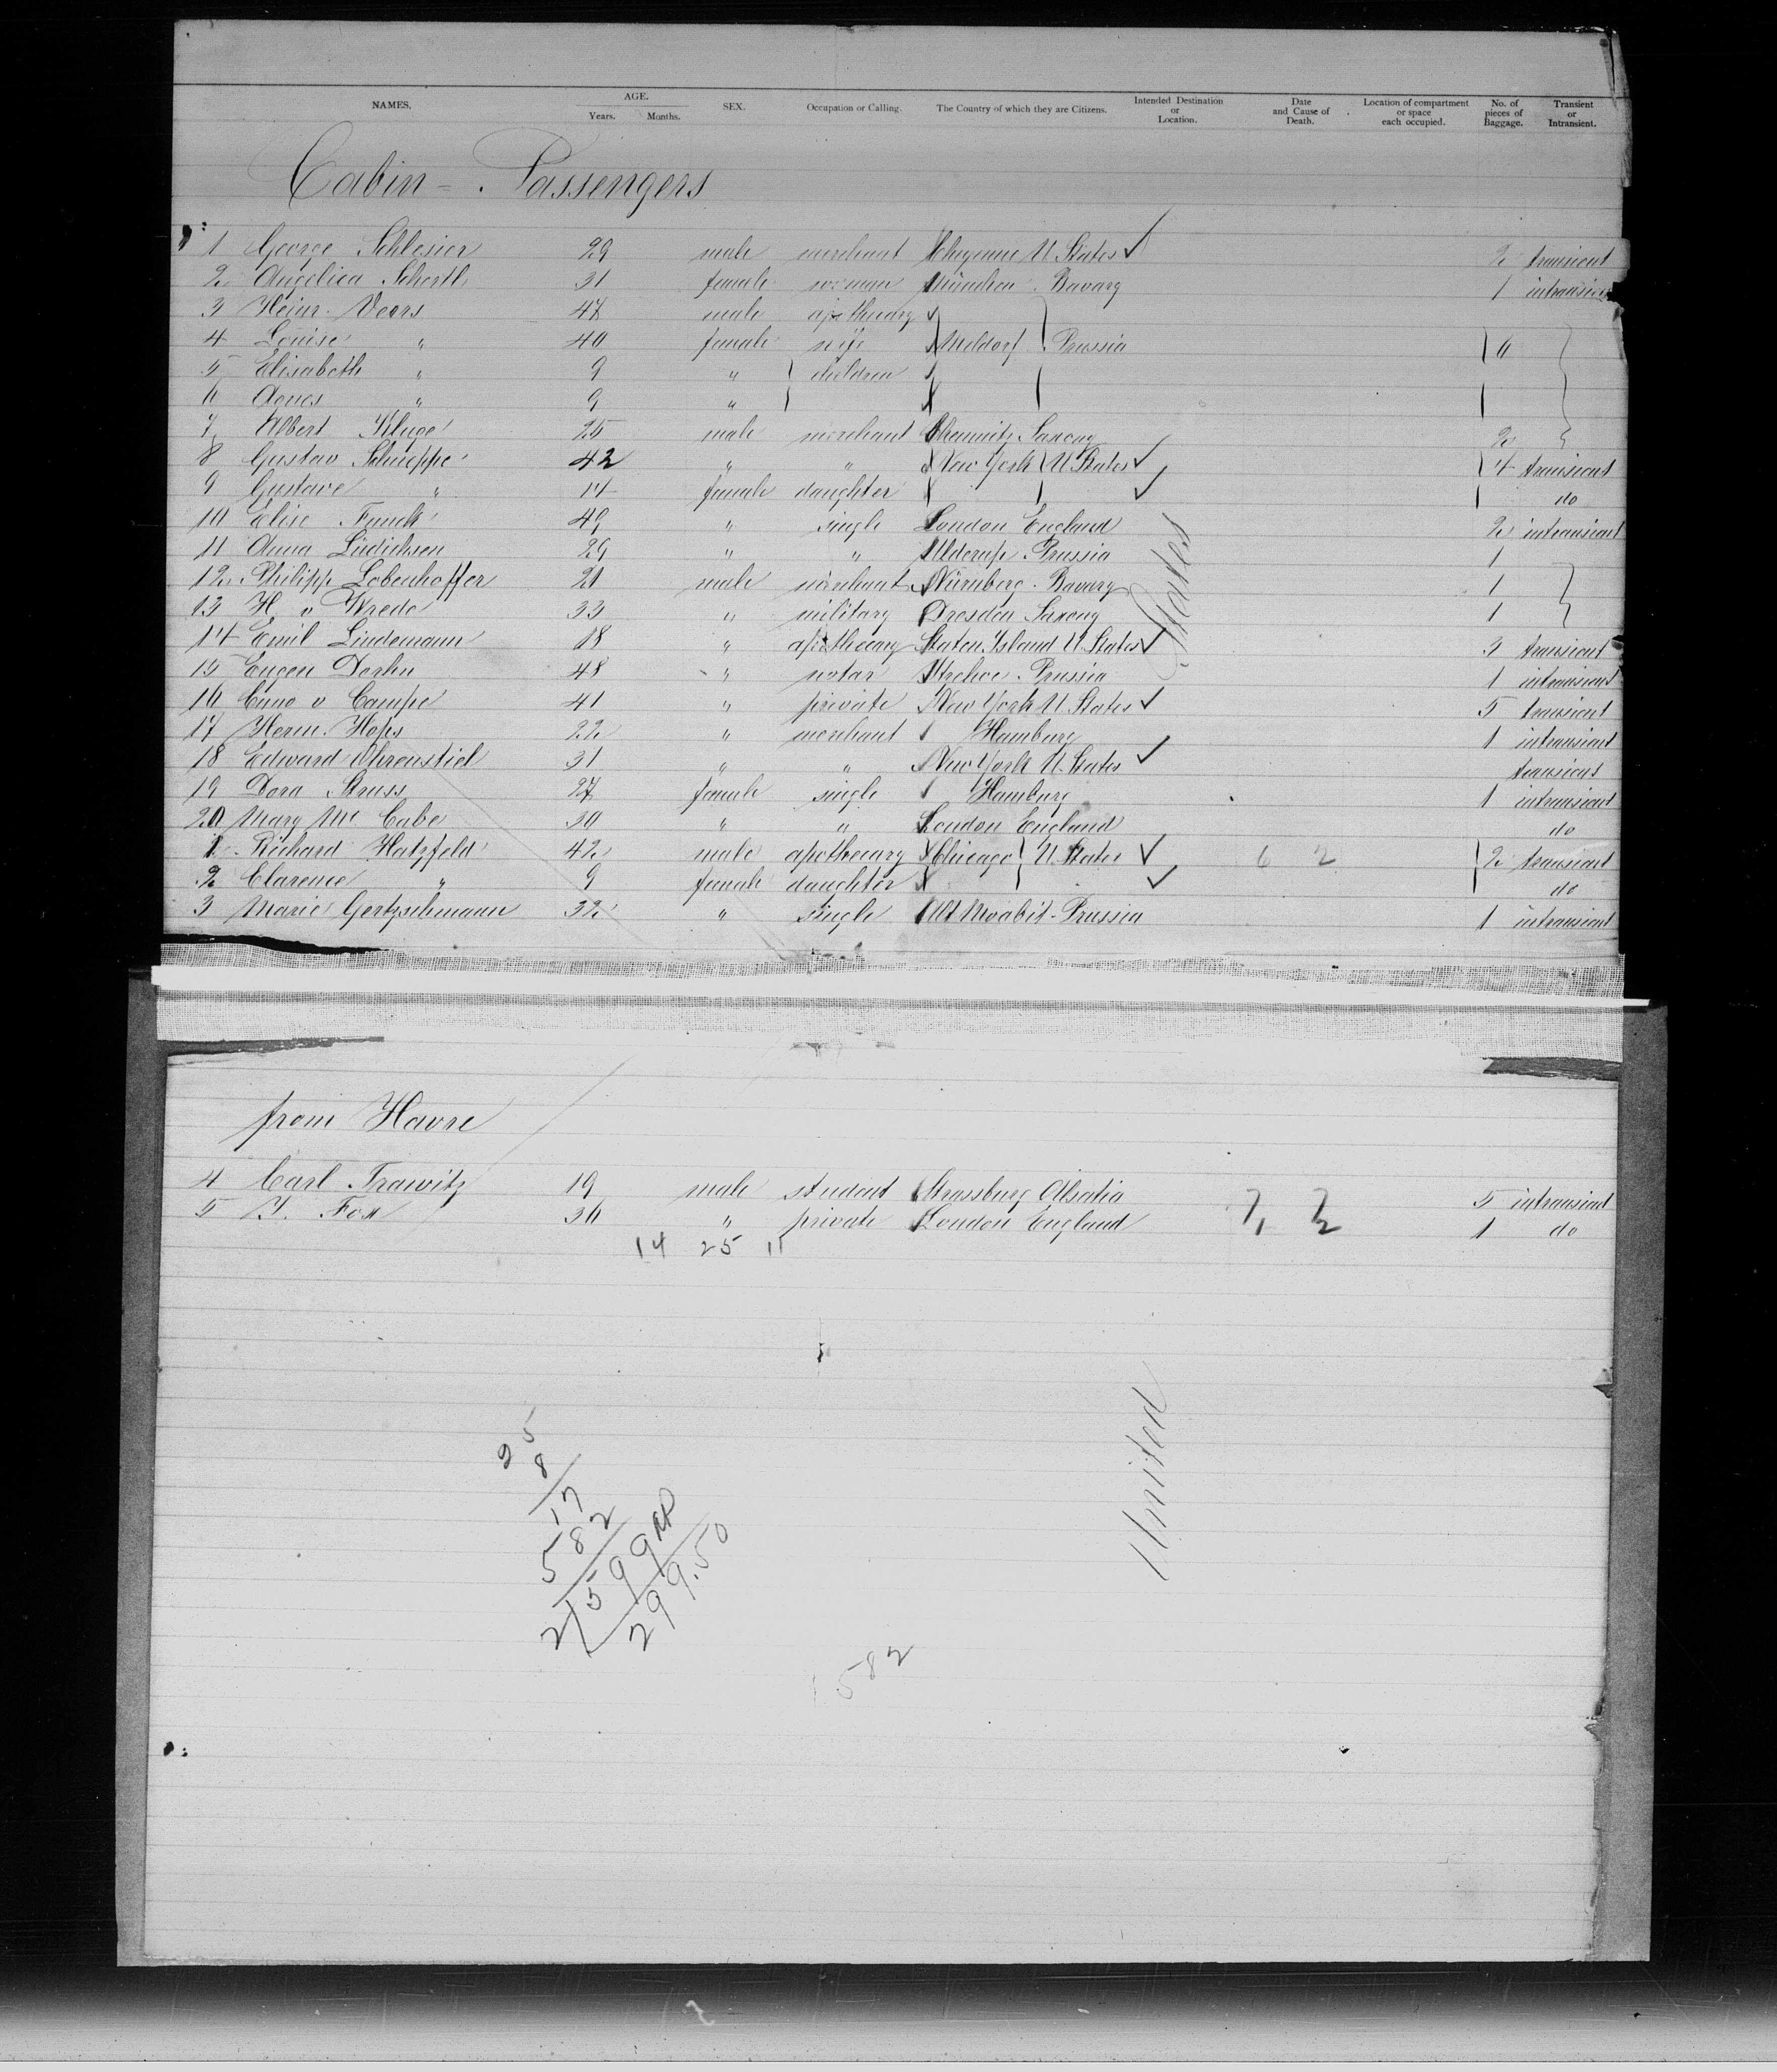 NAMES. AGE. Years. Months. SEX. Occupation or Calling. The Country of which they are Citizens. Intended Destination or Location. Date and Cause of Death. Location of compartment or space each occupied. No. of pieces of Baggage. Transient or Intransient.
Cabin = Passengers
1 George Schlesier 29 male merchant Cheyenne U States ✓ 2 transient
2 Angelica Schertl 31 female woman München Bavary 1 intransient
3 Heinr. Veers 47 male apothecary
4 Louise " 40 female wife Meldorf Prussia 6
5 Elisabeth " 9 " children
6 Agnes " 9 "
7 Albert Kluge 25 male merchant Chemnitz Saxony 2
8 Gustav Schweppe 42 " " New York U States ✓ 4 transient
9 Gustave " 14 female daughter ✓ do
10 Elise Funck 49 " single London England 2 intransient
11 Anna Lüdichsen 29 " " Ulderup Prussia 1
12 Philipp Lobenhoffer 21 male merchant Nürnberg Bavary 1
13 H v Wrede 33 " military Dresden Saxony 1
14 Emil Lindemann 18 " apothecary Staten Island U States ✓ 3 transient
15 Eugen 48 " notar Prussia 1 intransient
16 Cuno v Campe 41 " private New York U States ✓ 5 transient
17 Herm. Hops 22 " merchant Hamburg 1 intransient
18 Edward Ohrenstiel 31 " " New York U. States ✓ transient
19 Dora Struss 27 female single Hamburg 1 intransient
20 Mary Mc Cabe 30 " " London England do
1 Richard Hatzfeld 42 male apothecary Chicago U States ✓ 6 2 2 transient
2 Clarence " 9 female daughter ✓ do
3 Marie Gertzschmann 32 " single Alt Moabit - Prussia 1 intransient
States
from Havre
4 Carl Trawitz 19 male student Strassburg Alsatia 5 intransient
5 Fox 30 " private London England 1 do
14 25 11
United
25
8
17
582
2/599
299.50
582